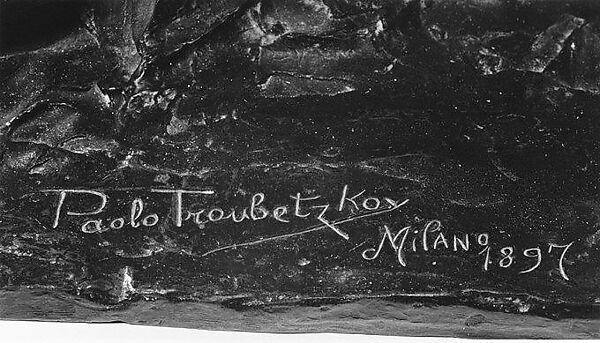 Paolo Troubetzkoy
Milano 1897